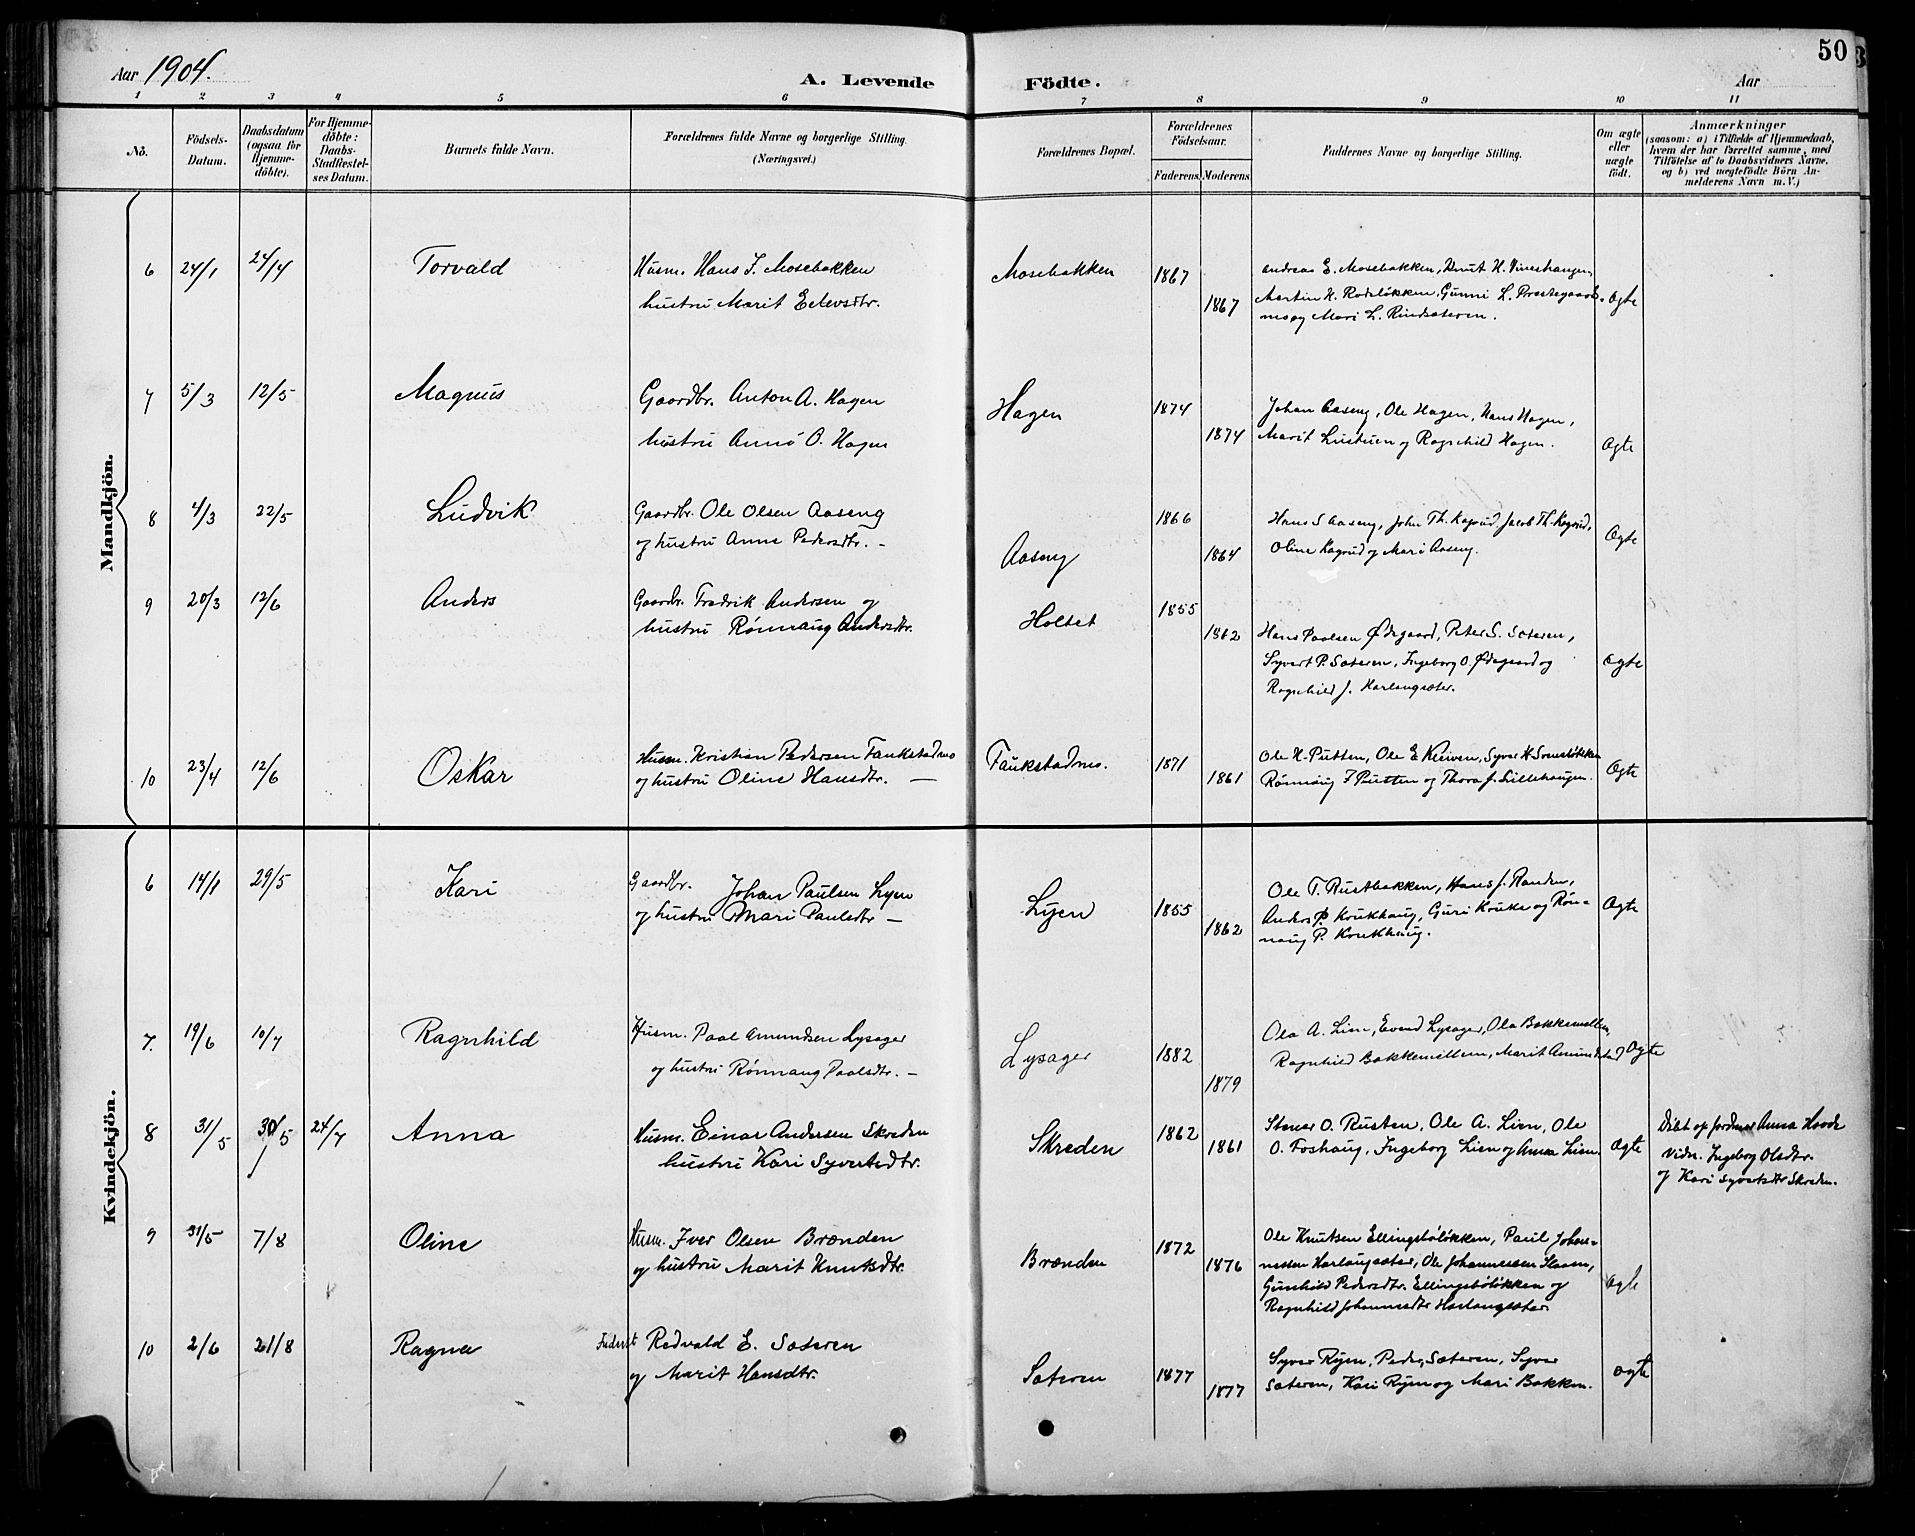 Aar 1904.
A. Levende Födte.
Aar
50
1 2 3 4 5 6 7 8 9 10 11
No.
Födsels-Datum.
Daabsdatum (ogsaa for Hjemme-döbte).
For Hjemme-döbte: Daabs-Stadfæstel-ses Datum.
Barnets fulde Navn.
Forældrenes fulde Navne og borgerlige Stilling.
(Næringsvei.)
Forældrenes Bopæl.
Forældrenes Födselsaar.
Faderens. Moderens.
Faddernes Navne og borgerlige Stilling.
Om ægte eller uægte födt.
Anmærkninger
(saasom: a) i Tilfælde af Hjemmedaab,
hvem der har forrettet samme, med
Tilföielse af to Daabsvidners Navne.
og b) ved uægtefödte Börn An-
melderens Navn m. V.)
Mandkjön.
6 24/1 24/4 Torvald Husm. Hans J. Mosebakken Mosebakken 1867 Andreas E. Mosebakken, Knut H. Vineshaugen,
hustru Marit Eelevsdtr. 1867 Martin H. Rodeløkken, Gunni L. Prestegaards- Ægte
næs og Mari L. Rindsæteren.
7 5/3 12/5 Magnus Gaardbr. Anton A. Hagen Hagen 1874 Johan Aaseng, Ole Hagen, Hans Hagen,
hustru Anne O. Hagen 1874 Marit og Ragnhild Hagen. Ægte
8 4/3 22/5 Ludvik Gaardbr. Ole Olsen Aaseng Aaseng 1866 Hans S Aaseng, John Th. Kagrud, Jacob Th. Kagrud,
og hustru Anne Pedersdtr. - 1864 Oline Kagrud og Mari Aaseng. Ægte
9 20/3 12/6 Anders Gaardbr. Fredrik Andersen og Holtet 1855
hustru Rønnaug Andersdtr. 1862 Hans Paalsen Ødegaard, Peter S. Sæteren,
Syvert P. Sæteren, Ingeborg O. Ødegaard og Ægte
Ragnhild J. Harlaugsæter.
10 23/4 12/6 Oskar Husm. Kristian Pedersen Faukstadnæs Faukstadnæs. 1871 Ole H. Putten, Ole E
og hustru Oline Hansdtr. — 1861 Rønnaug Putten og Thora J. Lillehaugen. Ægte
Kvindekjön.
6 14/1 29/5 Kari Gaardbr. Johan Paulsen Lyen Lyen 1855 Ole T. Rustbakken, Hans J. Randen,
og hustru Mari Paulsdtr — 1862 Anders P. Krukhaug, Guri Kruke og Røn- Ægte
naug P. Krukhaug.
7. 19/6 10/7 Ragnhild Husm. Paal Amundsen Lysager Lysager 1882 Ole A. Lien, Evend Lysager, Ola Bakkemellem,
og hustru Rønnaug Paalsdtr. — 1879 Ragnhild Bakkemellem, Marit Amundstad Ægte
8 31/5 30/5 24/7 Anna Husm. Einar Andersen Skreden Skreden 1862 Stenar O. Rusten, Ole A. Lien, Ole
hustru Kari Syvertsdtr. 1861 O. Foshaug, Ingeborg Lien og Anna Lien. Ægte
Døbt af jordmor Anna Hovde
Vidn. Ingeborg Olsdtr.
og Kari Syvertsdtr Skreden.
9 31/5 7/8 Oline Husm. Iver Olsen Brænden Brænden 1872 Ole Knutsen Ellingsbøløkken, Paul Johan-
og hustru Marit Knutsdtr. 1876 nessen Harlaugsæter, Ole Johannessen Slaaen,
Gunhild Pedersdtr. Ellingsbøløkken og Ægte
Ragnhild Johannesdtr Harlaugsæter
10 2/6 21/8 Ragna Redvald E. Sæteren Sæteren 1877 Syver Ryen, Peder Sæteren, Syver
og Marit Hansdtr. 1877 Sæteren, Kari Ryen og Mari Bakken. Ægte